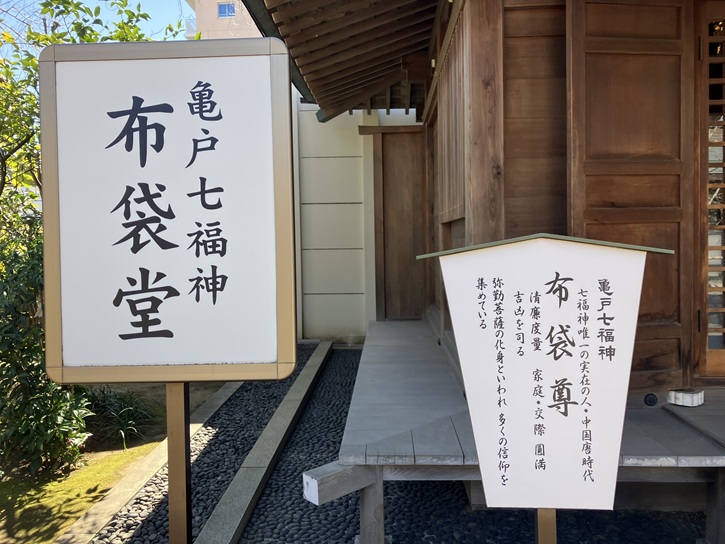 亀戸七福神
布袋堂
亀戸七福神
七福神唯一の実在の人・中国唐時代
布袋尊
清廉度量　家庭・交際　圓満
吉凶を司る
弥勒菩薩の化身といわれ　多くの信仰を
集めている